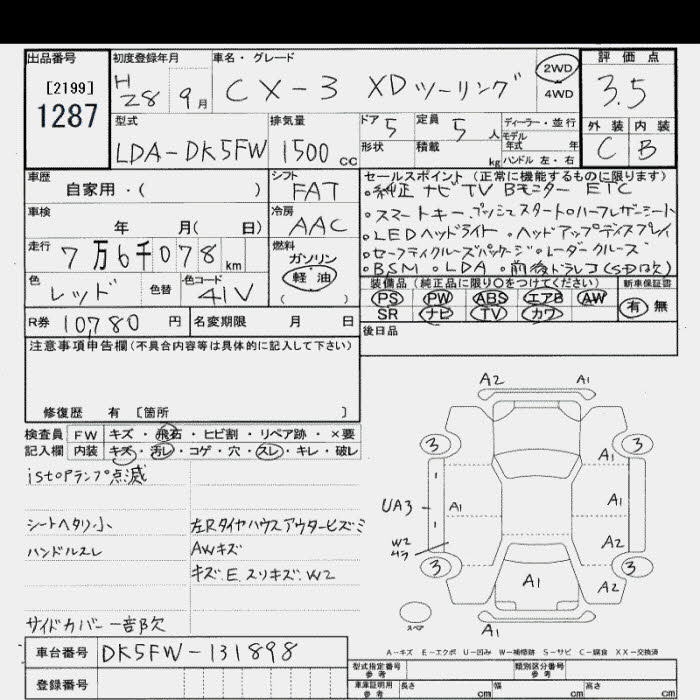 出品番号
[2199]
1287
初度登録年月
H28 9月
車名・グレード
CX-3 XDツーリング
2WD
4WD
評価点
3.5
外装 内装
C B
型式
LDA-DK5FW
排気量
1500 cc
ドア 5
定員 5 人
形状
積載 kg
ディーラー・並行
モデル年式 年
ハンドル 左・右
車歴
自家用・( )
シフト
FAT
車検
年 月( 日)
冷房
AAC
走行
7万6千078km
燃料
ガソリン
軽油
( )
色
レッド
色替
色コード
41V
R券 10,780 円
名変期限 月 日
セールスポイント(正常に機能するものに限ります)
・純正ナビTV Bモニター ETC
・スマートキー.プッシュスタート・ハーフレザーシート
・LEDヘッドライト・ヘッドアップディスプレイ
・セーフティクルーズパッケージ・レーダークルーズ
・BSM・LDA・前後ドラレコ(SD欠)
装備品(純正品に限り○をつけてください)
新車保証書
PS PW ABS エアB AW
SR ナビ TV カワ
有 無
後日品
注意事項申告欄(不具合内容等は具体的に記入して下さい)
修復歴 有 [箇所 ]
検査員記入欄
FW キズ・飛石・ヒビ割・リペア跡・×要
内装 キズ・汚レ・コゲ・穴・スレ・キレ・破レ
istopランプ点滅
シートヘタリ小 左Rタイヤハウスアウターヒズミ
ハンドルスレ AWキズ
キズ.E.スリキズ.W2
サイドカバー一部欠
車台番号 DK5FW-131898
登録番号
A2 A1
3 3
A1
UA3 A1 A1
W2
A2
3 3
A1 A2
スペア
A1
A-キズ E-エクボ U-凹み W-補修跡 S-サビ C-腐食 XX-交換済
型式指定番号 参考
類別区分番号 参考
車庫証明用 参考 長さ cm 幅 cm 高さ cm